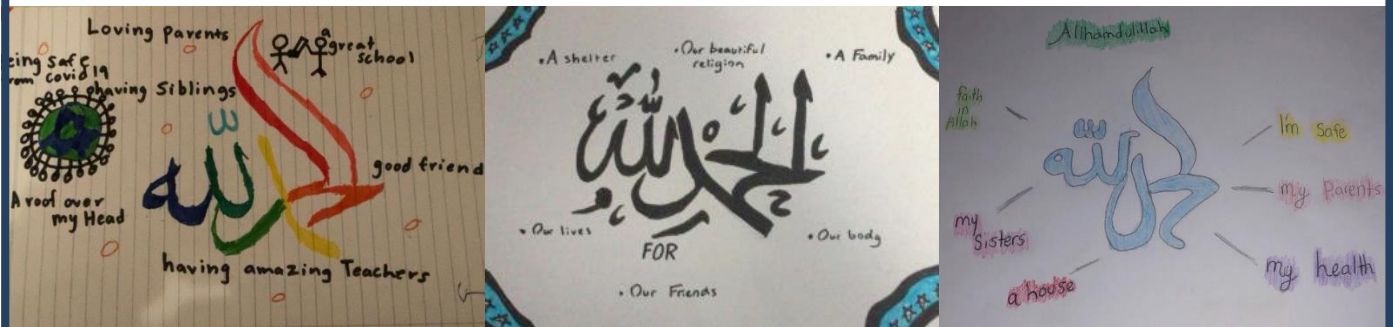 Loving parents
a
great
school
eing safe
rom covid 19
having Siblings
الحمد لله
good friend
A roof over
my Head
having amazing Teachers
• A shelter
• Our beautiful
religion
• A Family
الحمد لله
• Our lives
FOR
• Our body
• Our Friends
Allhamdulillah
faith
in
Allah
I'm safe
الحمد لله
my parents
my
Sisters
a house
my health